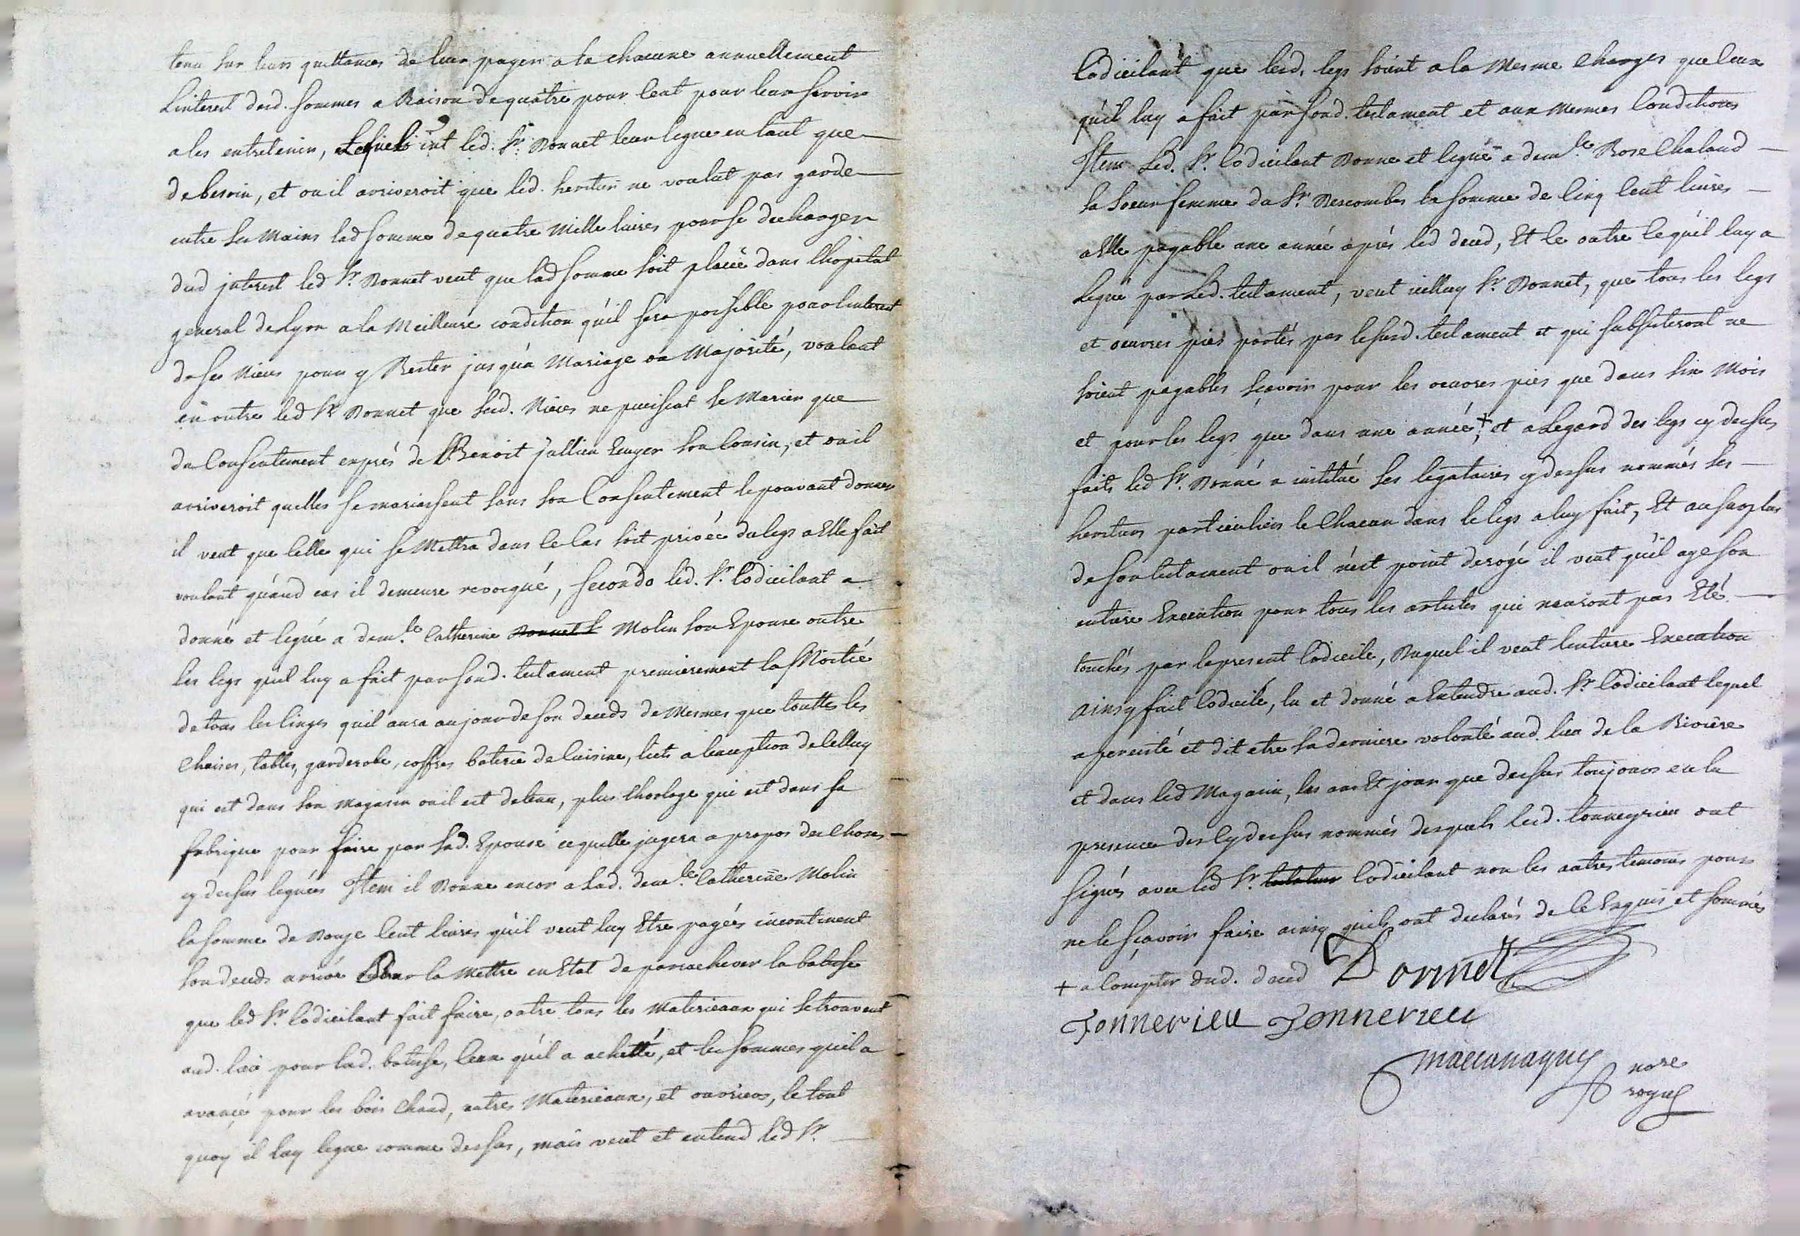 tenu sur leurs quittances de leur payer a la chacune annuellement
Linterest desd. sommes a Raison de quatre pour Cent pour leur servir
a les entretenir, Lequel int led. Sr. Bonnet leur legue en tant que
de besoin, et ou il arriveroit que led. heritier ne voulut pas garder
entre ses Mains lad somme de quatre Mille livres pour se decharger
dud interest led Sr. Bonnet veut que lad somme soit placée dans lhopital
general de Lyon a la Meilleure condition quil sera possible pour linterest
de ses Nieces pour y Rester jusqua Mariage ou Majorité, voulant
en outre led Sr. Bonnet que sesd. Nieces ne puissent se Marier que
du Consentement exprés de Benoit jullien Enyer son Cousin, et ou il
arriveroit quelles se mariassent sans son Consentement le pouvant donner
il veut que Celle qui se Mettra dans le Cas soit privée du legs a Elle fait
voulant quaud cas il demeure revoqué, secondo led. Sr. Codicilant a
donné et legué a demlle. Catherine Bonnet Molin son Epouse outre
les legs quil luy a fait par sond. testament premierement la Moitié
de tous les linges quil aura au jour de son deceds de Mesmes que touttes les
Chaises, tables, garderobe, coffres baterie de Cuisine, licts a lexception de Celluy
qui est dans son Magasin ou il est detenu, plus Lhorloge qui est dans sa
fabrique pour faire par sad. Epouse ce quelle jugera a propos des Choses
cy dessus leguées Item il Donne encor a Lad. demlle. Catherine Molin
la somme de Douze Cent livres quil veut luy Etre payées incontinent
son deceds arrivé Pour la Mettre en Etat de parachever la batisse
que led Sr. Codicilant fait faire, outre tous les Materieaux qui se trouveront
aud. lieu pour lad. batisse, Ceux quil a achetté, et les sommes quil a
avancé pour les bois Chaud, autres Materieaux, et ouvriers, le tout
quoy il luy legue comme dessus, mais veut et entend led Sr.
Codicilant que lesd. legs soint a la Mesme Charges que Ceux
quil luy a fait par sond. testament et aux Mesmes Conditions
Item Led. Sr. Codicilant Donne et legue a demlle Rose Chaland
sa Soeur femme du Sr. Descombes la somme de Cinq Cent livres
a Elle payable une année aprés led deced, Et le outre Ce quil luy a
Legué par Led. testament, veut icelluy Sr. Bonnet, que tous les legs
et oeuvres pies portés par le susd. testament et qui subsisteront ne
soient payables sçavoir pour les oeuvres pies que dans six Mois
et pour les legs que dans une année +, et a Legard des legs cy dessus
faits led Sr. Bonné a institué ses legataires cy dessus nommés ses
heritiers particuliers le Chacun dans le legs a luy fait, Et au surplus
de son testament ou il nest point derogé il veut quil aye son
entiere Execution pour tous les articles qui nauront pas Eté
touchés par le present Codicile, Duquel il veut lentiere Execution
Ainsy fait Codicilé, lu et donné a Entendre aud. Sr. Codicilant lequel
a persisté et dit etre sa derniere volonté aud. lieu de la Riviere
et dans led Magasin, les an Et jour que dessus toujours en la
presence des Cy dessus nommés desquels lesd. tonneyrieu ont
signés avec led Sr. testateur Codicilant non les autres temoins pour
ne le sçavoir faire ainsy quils ont declarés de Ce Enquis et sommés
+ a Compter dud. deced Bonnet
Tonnerieu Tonnerieu
Maccanaguy nore
royal